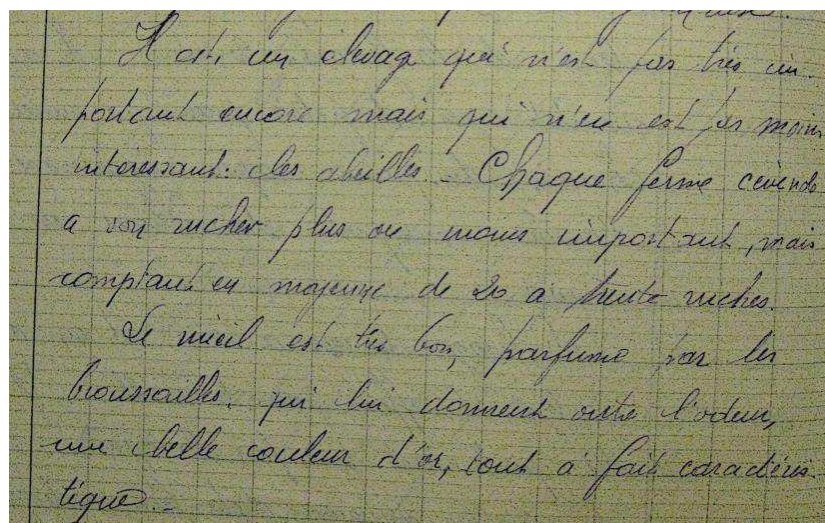 Il est un élevage qui n'est pas très im-
portant encore mais qui n'en est pas moins
intéressant: les abeilles - Chaque ferme cévenole
a son rucher plus ou moins important, mais
comptant en moyenne de 20 à trente ruches.
Le miel est très bon, parfumé par les
broussailles qui lui donnent outre l'odeur,
une belle couleur d'or, tout à fait caractéris-
tique.-